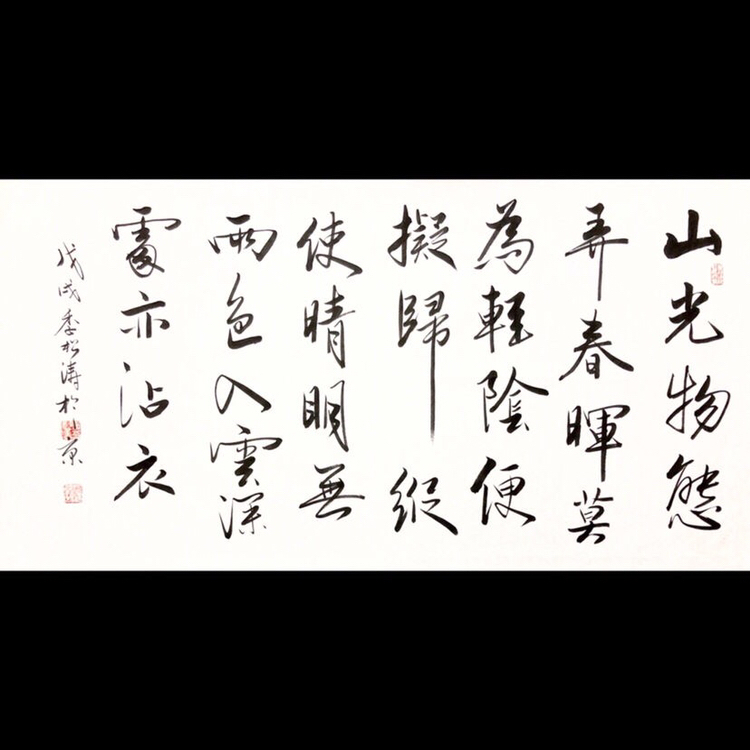 山光物態
弄春暉莫
為輕陰便
擬歸縱
使晴明無
雨色入雲深
處亦沾衣
戊戌季松濤於北京